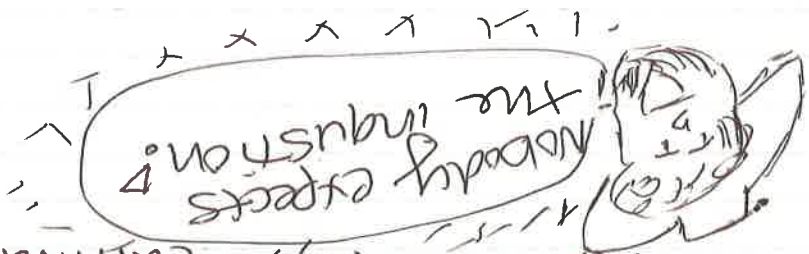 Nobody expects
the inqustion!